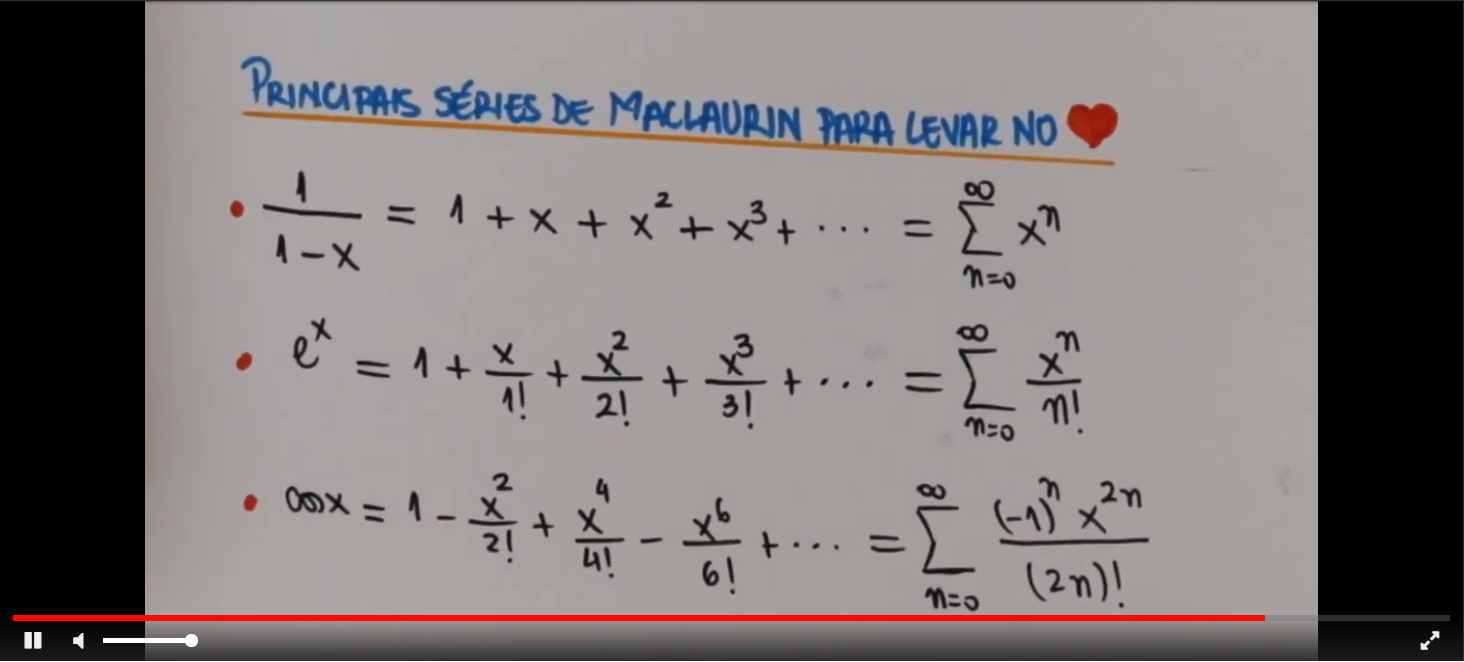 PRINCIPAIS SÉRIES DE MACLAURIN PARA LEVAR NO ❤
• 1/(1-x) = 1 + x + x² + x³ + ··· = ∑_{n=0}^{∞} xⁿ
• eˣ = 1 + x/1! + x²/2! + x³/3! + ··· = ∑_{n=0}^{∞} xⁿ/n!
• cos x = 1 - x²/2! + x⁴/4! - x⁶/6! + ··· = ∑_{n=0}^{∞} (-1)ⁿ x²ⁿ/(2n)!